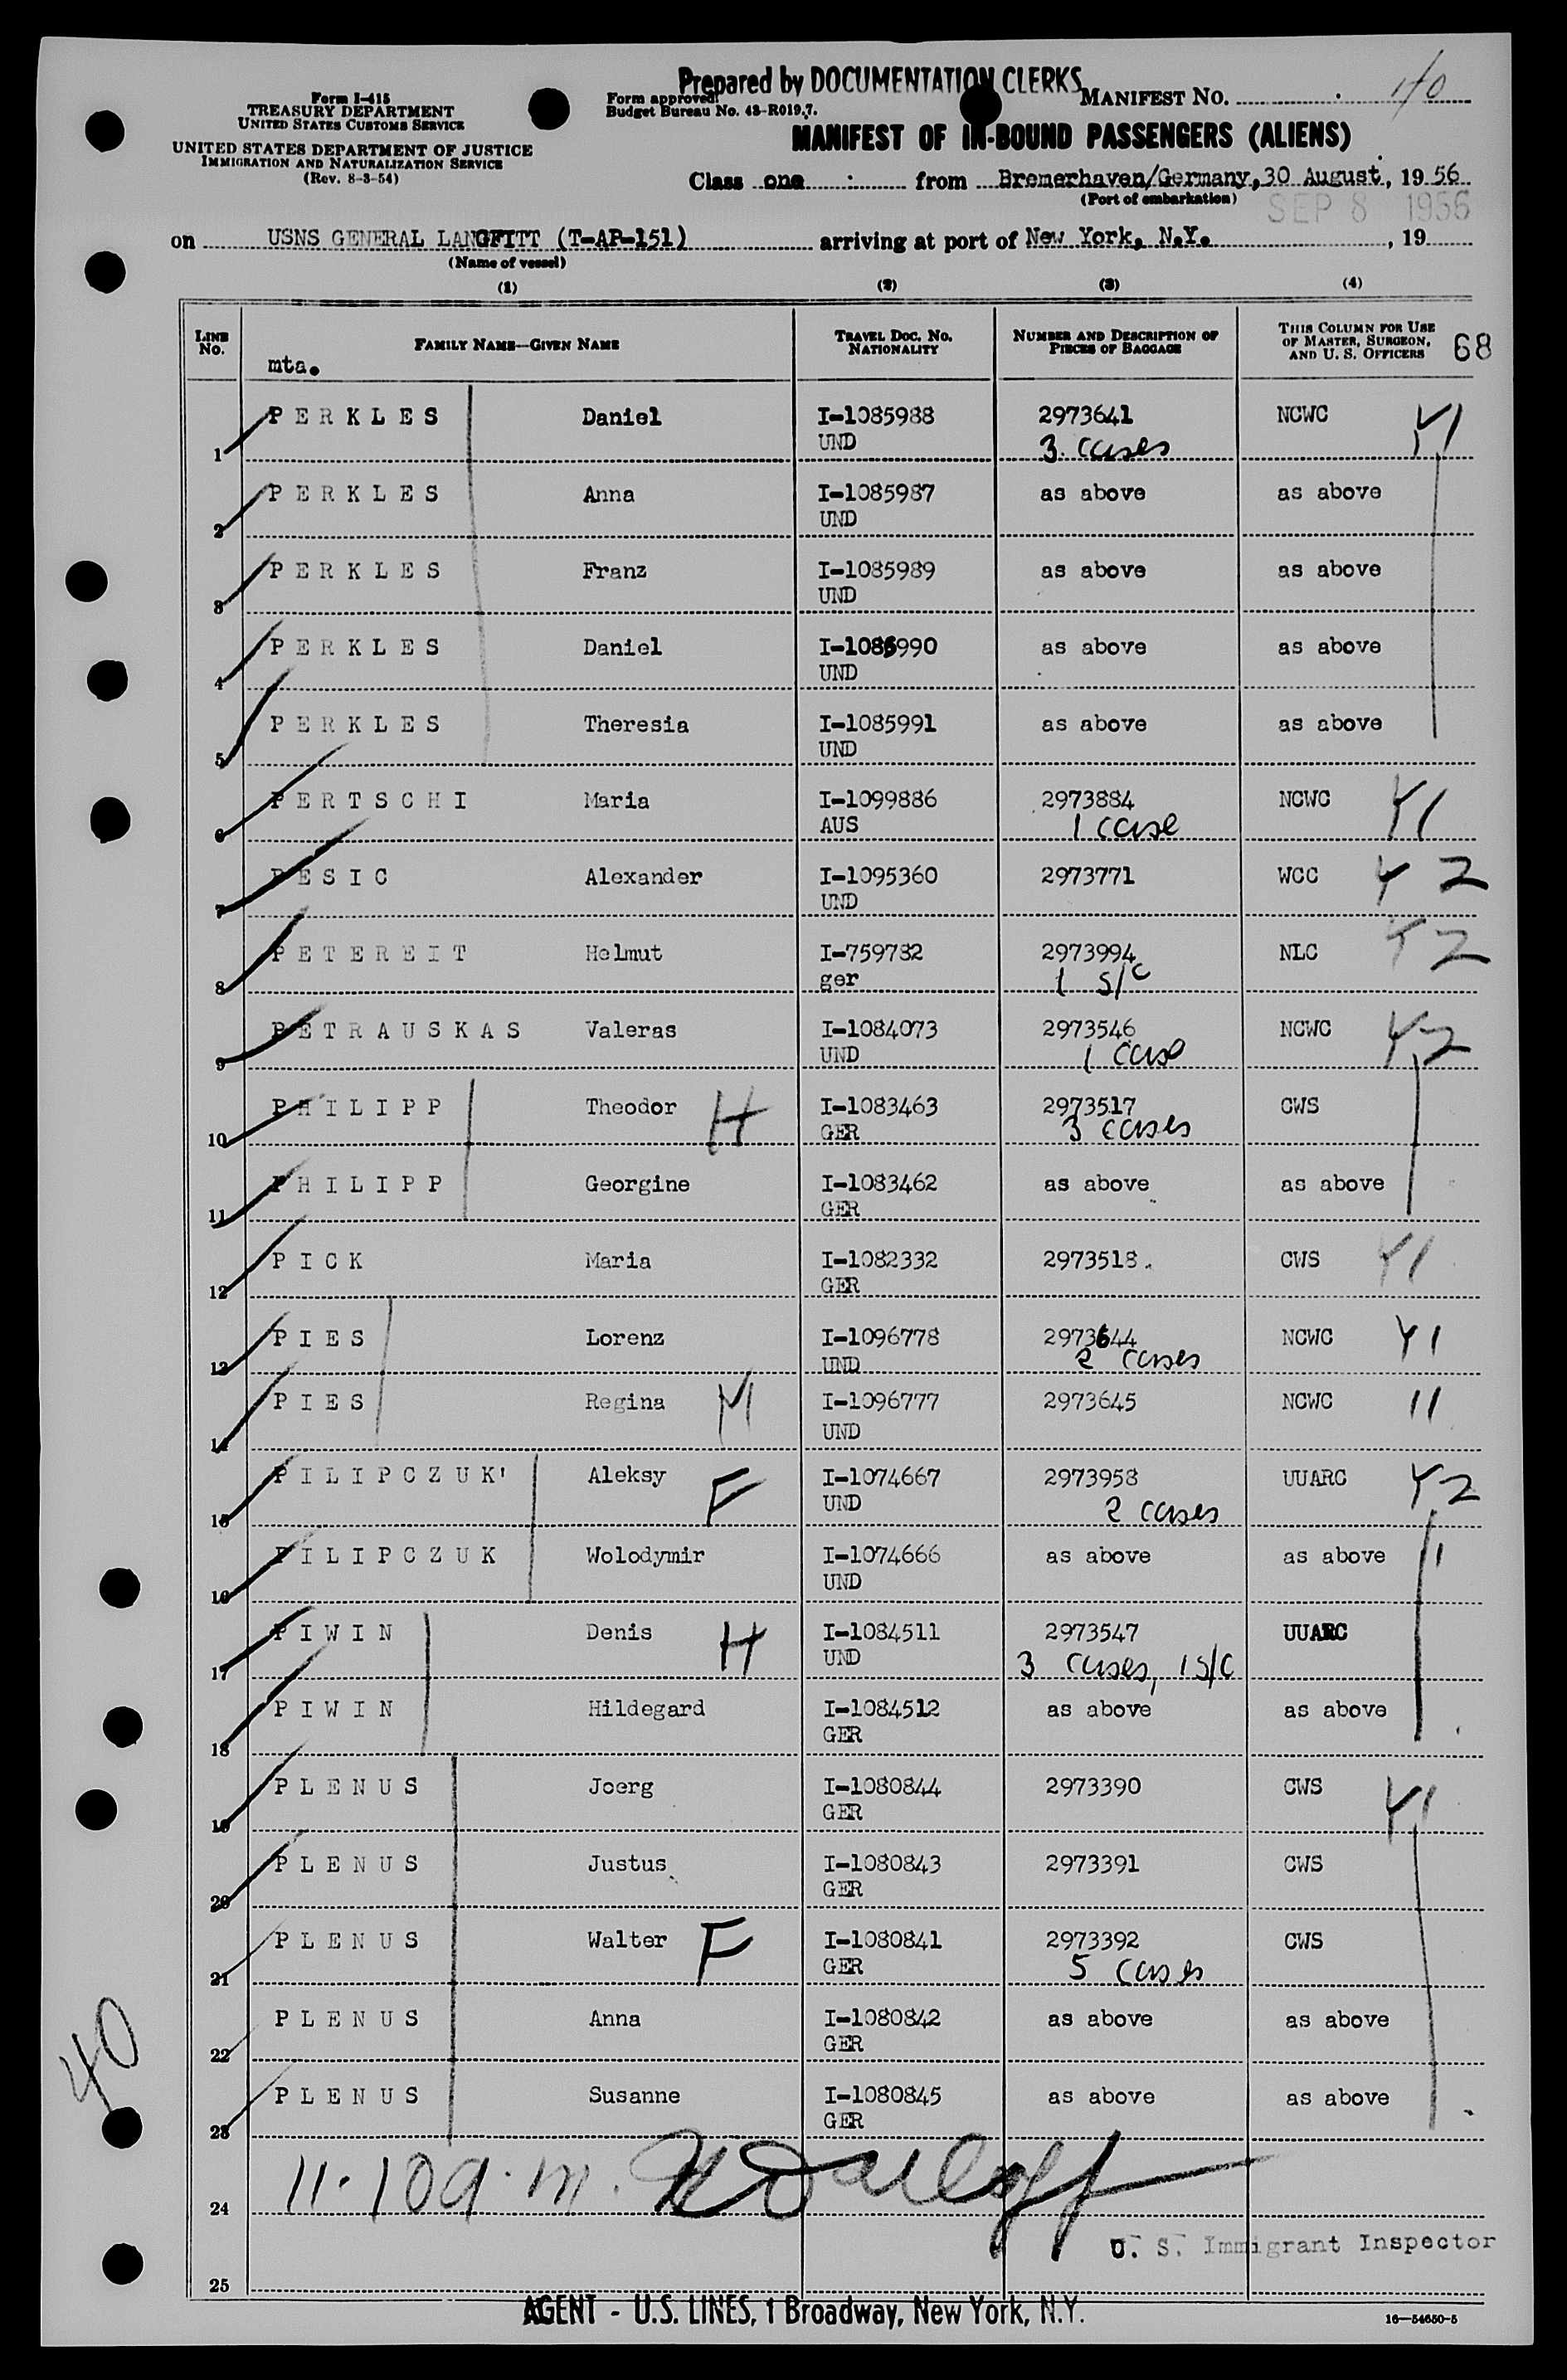 Prepared by DOCUMENTATION CLERKS
Form I-415
TREASURY DEPARTMENT
UNITED STATES CUSTOMS SERVICE
UNITED STATES DEPARTMENT OF JUSTICE
IMMIGRATION AND NATURALIZATION SERVICE
(Rev. 8-3-54)
Form approved.
Budget Bureau No. 43-R019.7.
MANIFEST NO.
MANIFEST OF IN-BOUND PASSENGERS (ALIENS)
Class one from Bremerhaven/Germany, 30 August, 19 56
(Port of embarkation)
SEP 8 1956
on USNS GENERAL LANGFITT (T-AP-151) arriving at port of New York, N.Y., 19
(Name of vessel)
(1) (2) (3) (4)
LINE No. FAMILY NAME—GIVEN NAME TRAVEL DOC. NO. NATIONALITY NUMBER AND DESCRIPTION OF PIECES OF BAGGAGE THIS COLUMN FOR USE OF MASTER, SURGEON, AND U. S. OFFICERS 68
mta.
1 PERKLES Daniel I-1085988 2973641 NCWC Y1
UND 3 cases
2 PERKLES Anna I-1085987 as above as above
UND
3 PERKLES Franz I-1085989 as above as above
UND
4 PERKLES Daniel I-1085990 as above as above
UND
5 PERKLES Theresia I-1085991 as above as above
UND
6 PERTSCHI Maria I-1099886 2973884 NCWC Y1
AUS 1 case
7 PESIC Alexander I-1095360 2973771 WCC Y2
UND
8 PETEREIT Helmut I-759782 2973994 NLC Y2
ger 1 s/c
9 PETRAUSKAS Valeras I-1084073 2973546 NCWC Y2
UND 1 case
10 PHILIPP Theodor H I-1083463 2973517 CWS
GER 3 cases
11 PHILIPP Georgine I-1083462 as above as above
GER
12 PICK Maria I-1082332 2973518. CWS Y1
GER
13 PIES Lorenz I-1096778 2973644 NCWC Y1
UND 2 cases
14 PIES Regina M I-1096777 2973645 NCWC 11
UND
15 PILIPCZUK' Aleksy F I-1074667 2973958 UUARC Y2
UND 2 cases
16 PILIPCZUK Wolodymir I-1074666 as above as above 11
UND
17 PIWIN Denis H I-1084511 2973547 UUARC
UND 3 cases, 1 s/c
18 PIWIN Hildegard I-1084512 as above as above
GER
19 PLENUS Joerg I-1080844 2973390 CWS Y1
GER
20 PLENUS Justus I-1080843 2973391 CWS
GER
21 PLENUS Walter F I-1080841 2973392 CWS
GER 5 cases
22 PLENUS Anna I-1080842 as above as above
GER
23 PLENUS Susanne I-1080845 as above as above
GER
40
24 11.10 a.m.
U. S. Immigrant Inspector
25
AGENT - U.S. LINES, 1 Broadway, New York, N.Y.
16—54650-5